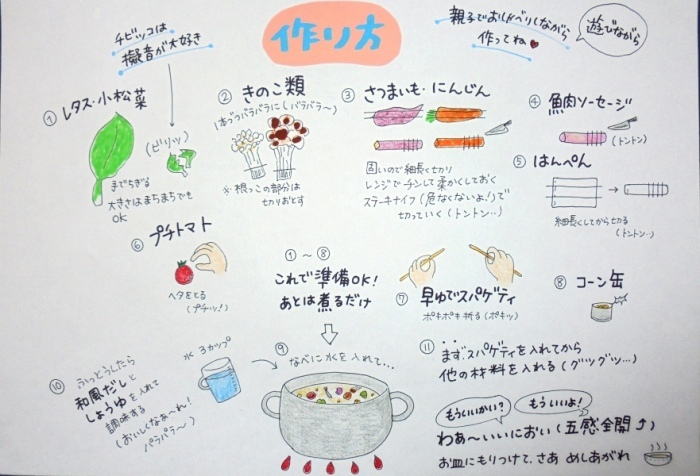 作り方
チビッコは
擬音が大好き
親子でおしゃべりしながら
作ってね
遊びながら
① レタス・小松菜
(ビリッ)
手でちぎる
大きさはまちまちでも
OK
② きのこ類
1本づつバラバラに(バラバラ〜)
※根っこの部分は
切りおとす
③ さつまいも・にんじん
固いので細長く切り
レンジでチンして柔かくしておく
ステーキナイフ(危なくないよ!)で
切っていく(トントン…)
④ 魚肉ソーセージ
(トントン)
⑤ はんぺん
細長くしてから切る
(トントン…)
⑥ プチトマト
ヘタをとる
(プチッ!)
①〜⑧
これで準備OK!
あとは煮るだけ
⑦ 早ゆでスパゲティ
ポキポキ折る(ポキッ)
⑧ コーン缶
⑨ なべに水を入れて…
水 3カップ
⑩ ふっとうしたら
和風だしと
しょうゆを入れて
調味する
(おいしくなあ〜れ!
パラパラ〜)
⑪ まず、スパゲティを入れてから
他の材料を入れる(グツグツ…)
もういいかい?
もういいよ!
わあ〜いいにおい(五感全開⤴)
お皿にもりつけて、さあ めしあがれ